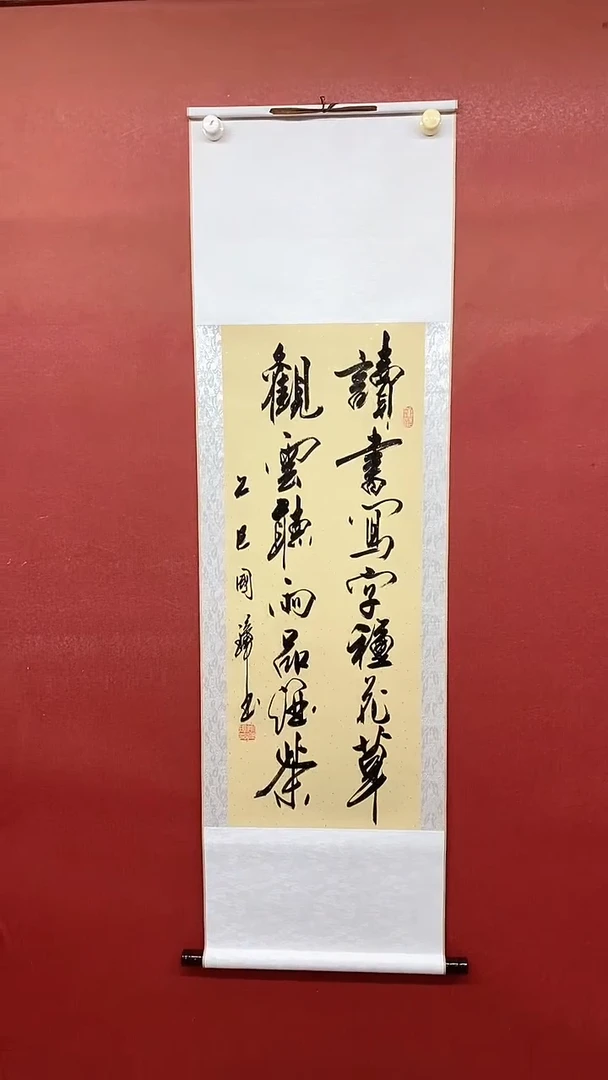 讀書寫字種花草
觀雲聽雨品經茶
乙巳國瑋書